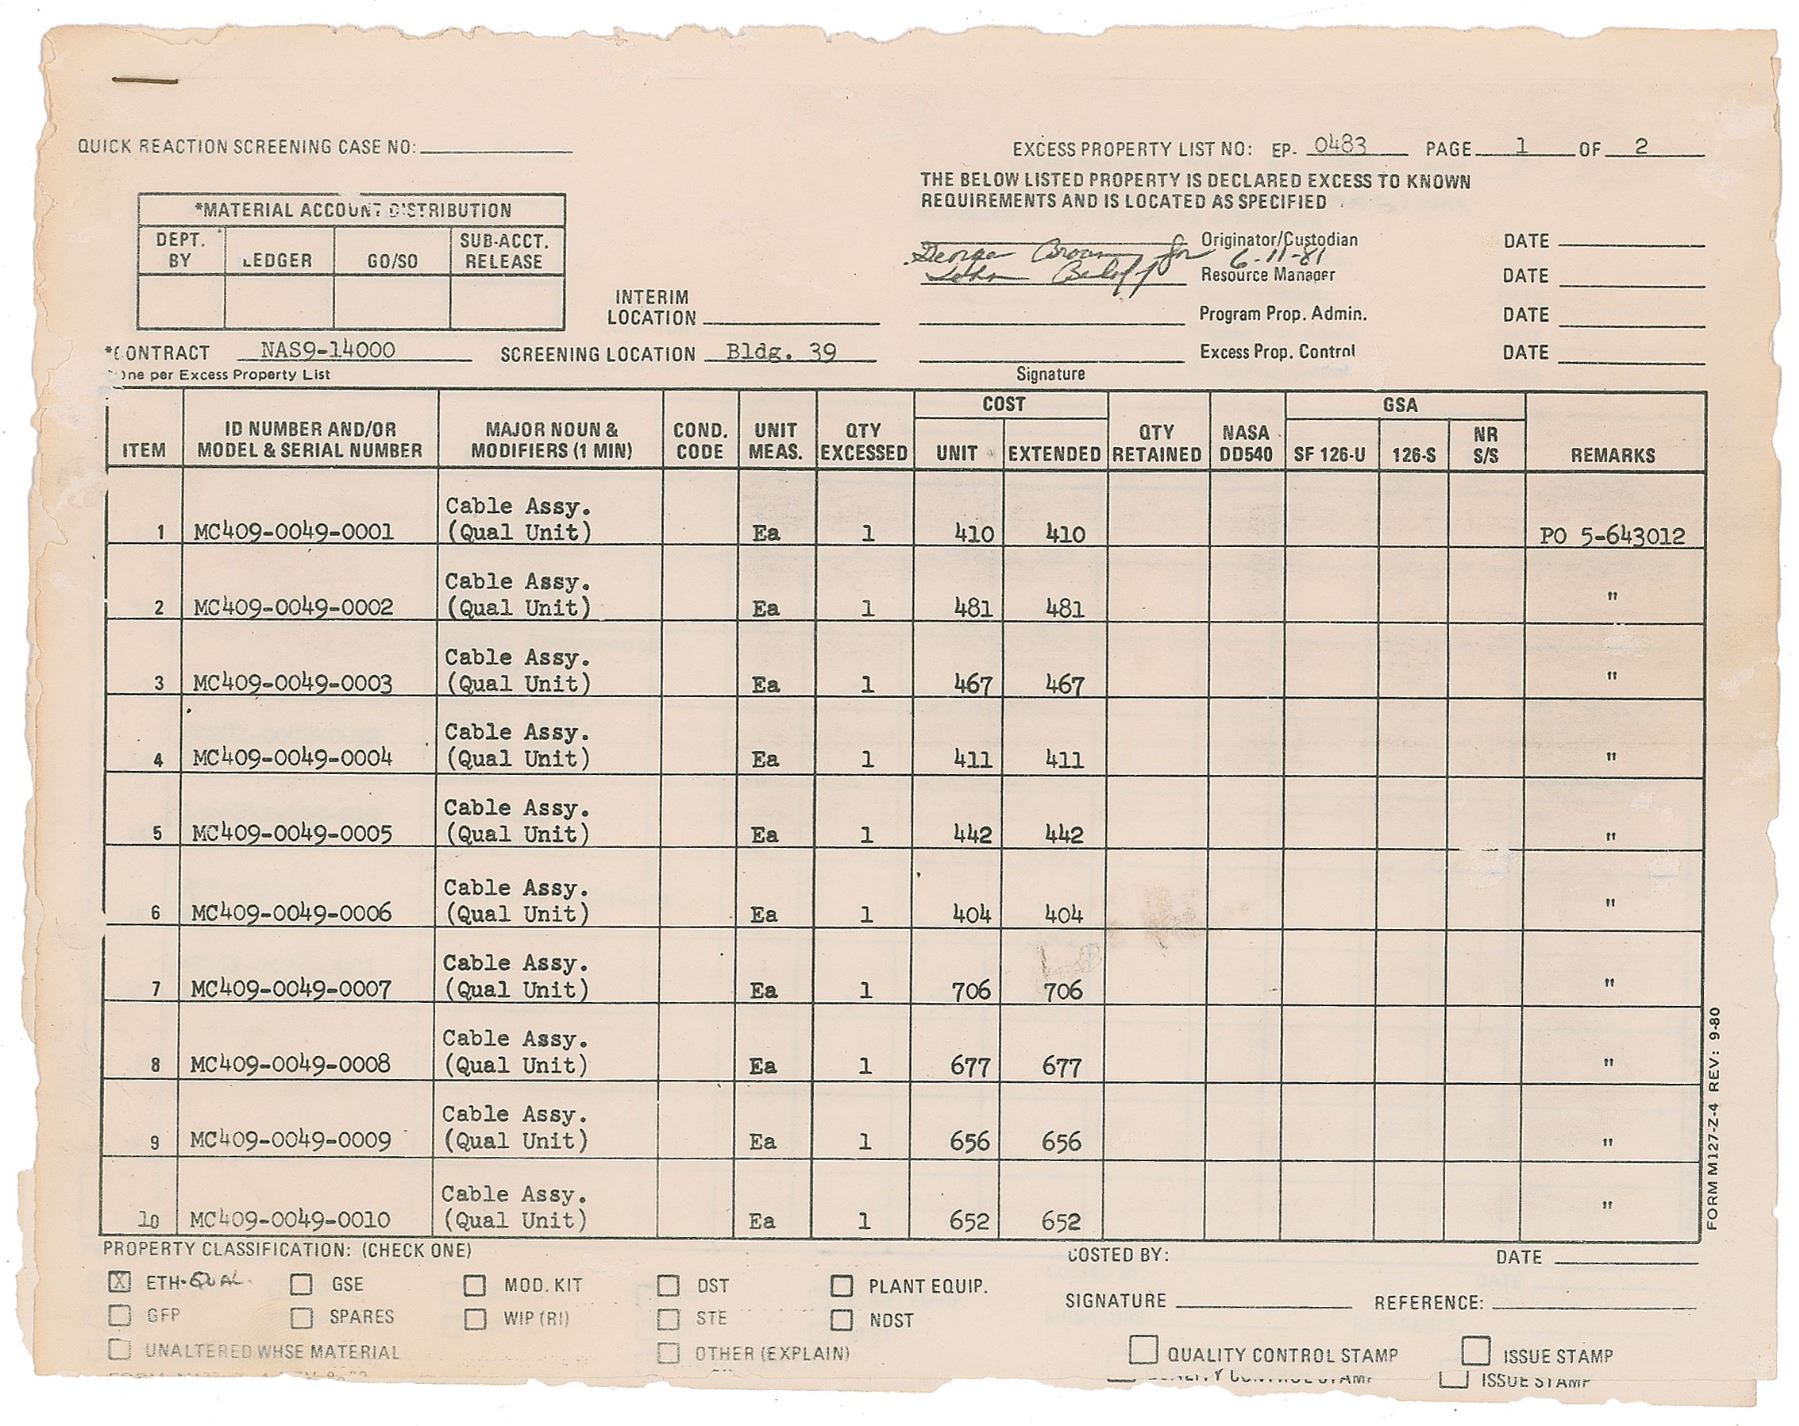 QUICK REACTION SCREENING CASE NO:
EXCESS PROPERTY LIST NO: EP- 0483 PAGE 1 OF 2
THE BELOW LISTED PROPERTY IS DECLARED EXCESS TO KNOWN
REQUIREMENTS AND IS LOCATED AS SPECIFIED
*MATERIAL ACCOUNT DISTRIBUTION
DEPT. BY LEDGER GO/SO SUB-ACCT. RELEASE
George Brown Jr Originator/Custodian DATE
6-11-81
John Resource Manager DATE
INTERIM
LOCATION
Program Prop. Admin. DATE
*CONTRACT NAS9-14000 SCREENING LOCATION Bldg. 39 Excess Prop. Control DATE
*One per Excess Property List
Signature
ITEM ID NUMBER AND/OR MODEL & SERIAL NUMBER MAJOR NOUN & MODIFIERS (1 MIN) COND. CODE UNIT MEAS. QTY EXCESSED COST UNIT EXTENDED QTY RETAINED NASA DD540 GSA SF 126-U 126-S NR S/S REMARKS
1 MC409-0049-0001 Cable Assy. (Qual Unit) Ea 1 410 410 PO 5-643012
2 MC409-0049-0002 Cable Assy. (Qual Unit) Ea 1 481 481 "
3 MC409-0049-0003 Cable Assy. (Qual Unit) Ea 1 467 467 "
4 MC409-0049-0004 Cable Assy. (Qual Unit) Ea 1 411 411 "
5 MC409-0049-0005 Cable Assy. (Qual Unit) Ea 1 442 442 "
6 MC409-0049-0006 Cable Assy. (Qual Unit) Ea 1 404 404 "
7 MC409-0049-0007 Cable Assy. (Qual Unit) Ea 1 706 706 "
8 MC409-0049-0008 Cable Assy. (Qual Unit) Ea 1 677 677 "
9 MC409-0049-0009 Cable Assy. (Qual Unit) Ea 1 656 656 "
10 MC409-0049-0010 Cable Assy. (Qual Unit) Ea 1 652 652 "
FORM M127-Z-4 REV: 9-80
PROPERTY CLASSIFICATION: (CHECK ONE)
COSTED BY: DATE
X ETH-QUAL GSE MOD. KIT DST PLANT EQUIP.
SIGNATURE REFERENCE:
GFP SPARES WIP (RI) STE NDST
UNALTERED WHSE MATERIAL OTHER (EXPLAIN)
QUALITY CONTROL STAMP ISSUE STAMP
QUALITY CONTROL STAMP ISSUE STAMP